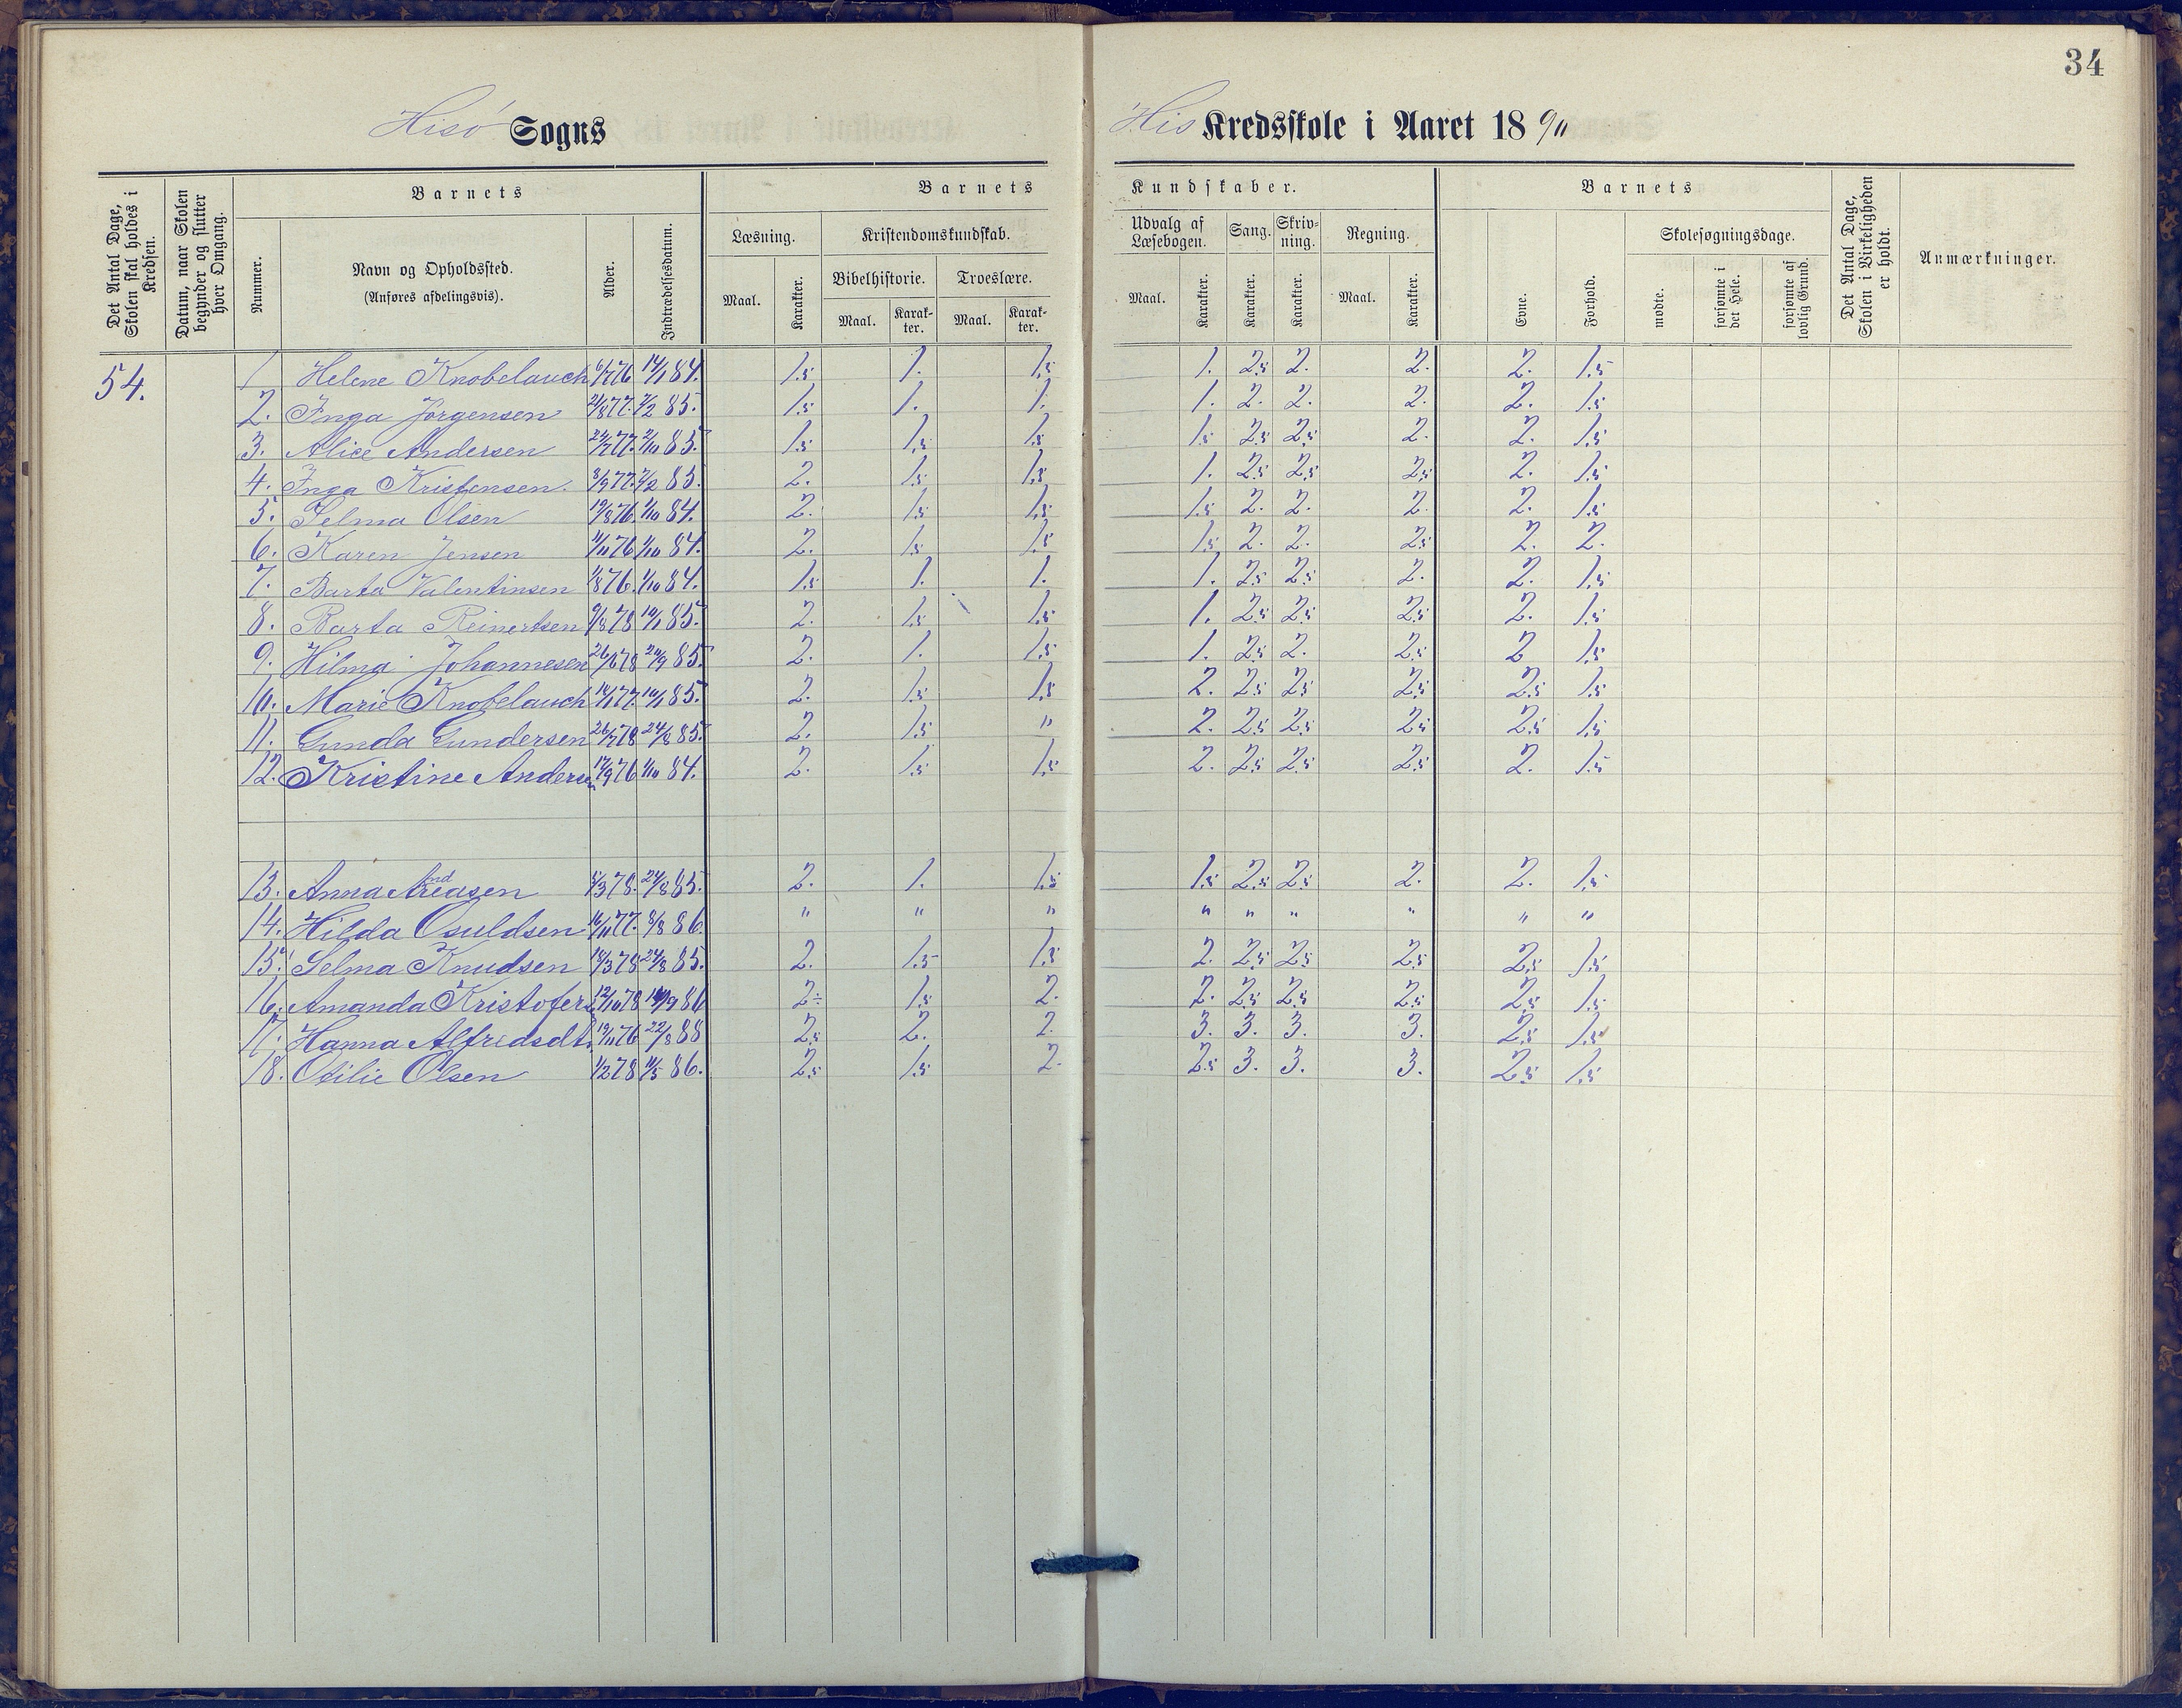 34
Hisö Sogns
His Kredsskole i Aaret 1890
Det Antal Dage, Skolen skal holdes i Kredsen.
Datum, naar Skolen begynder og slutter hver Omgang.
Barnets
Nummer.
Navn og Opholdssted.
(Anføres afdelingsvis).
Alder.
Indtrædelsesdatum.
Barnets
Læsning.
Maal. Karakter.
Kristendomskundskab.
Bibelhistorie. Troeslære.
Maal. Karakter. Maal. Karakter.
Kundskaber.
Udvalg af Læsebogen. Sang. Skrivning. Regning.
Maal. Karakter. Karakter. Karakter. Maal. Karakter.
Barnets
Evne. Forhold.
Skolesøgningsdage.
mødte. forsømte i det Hele. forsømte af lovlig Grund.
Det Antal Dage, Skolen i Virkeligheden er holdt.
Anmærkninger.
54.
1 Helene Knobelauch 6/7 76 14/1 84. 1.5 1. 1.5 1. 2.5 2. 2. 2. 1.5
2. Inga Jörgensen 21/8 77. 7/2 85. 1.5 1. 1. 1. 2. 2. 2. 2. 1.5
3. Alice Andersen 24/7 77. 2/10 85. 1.5 1.5 1.5 1.5 2.5 2.5 2. 2. 1.5
4. Inga Kristensen. 3/9 77. 7/2 85. 2. 1.5 1.5 1. 2.5 2.5 2.5 2. 1.5
5. Selma Olsen 19/8 76. 1/10 84. 2. 1.5 1.5 1.5 2. 2. 2. 2. 1.5
6. Karen Jensen 11/11 76 1/10 84. 2. 1.5 1.5 1.5 2. 2. 2.5 2. 2.
7. Barta Valentinsen 1/8 76. 1/10 84. 1.5 1. 1. 1. 2.5 2.5 2. 2. 1.5
8. Barta Reinertsen 9/8 78 14/1 85. 2. 1.5 1.5 1. 2.5 2.5 2.5 2. 1.5
9. Hilma Johannesen 26/6 78 24/9 85. 2. 1. 1.5 1. 2.5 2. 2.5 2 1.5
10. Marie Knobelauch 14/1 77. 14/1 85. 2. 1.5 1.5 2. 2.5 2.5 2.5 2.5 1.5
11. Gunda Gundersen 26/7 78 24/8 85. 2. 1.5 " 2. 2.5 2.5 2.5 2.5 1.5
12. Kristine Andersen 17/9 76 1/10 84. 2. 1.5 1.5 2. 2.5 2.5 2.5 2. 1.5
13. Anna Andreasen 5/3 78. 24/8 85. 2. 1. 1.5 1.5 2.5 2.5 2. 2. 1.5
14. Hilda Osuldsen 16/11 77. 8/8 86. " " " " " " " " "
15. Selma Knudsen 18/3 78 24/8 85. 2. 1.5 1.5 2. 2.5 2.5 2.5 2.5 1.5
16. Amanda Kristofers 12/10 78 /9 86 2÷ 1.5 2. 2. 2.5 2.5 2.5 2.5 1.5
17. Hanna Alfridsdt. 19/11 76 22/8 88 2.5 2. 2. 3. 3. 3. 3. 2.5 1.5
18. Otilie Olsen 1/2 78 11/5 86. 2.5 1.5 2. 2.5 3. 3. 3. 2.5 1.5